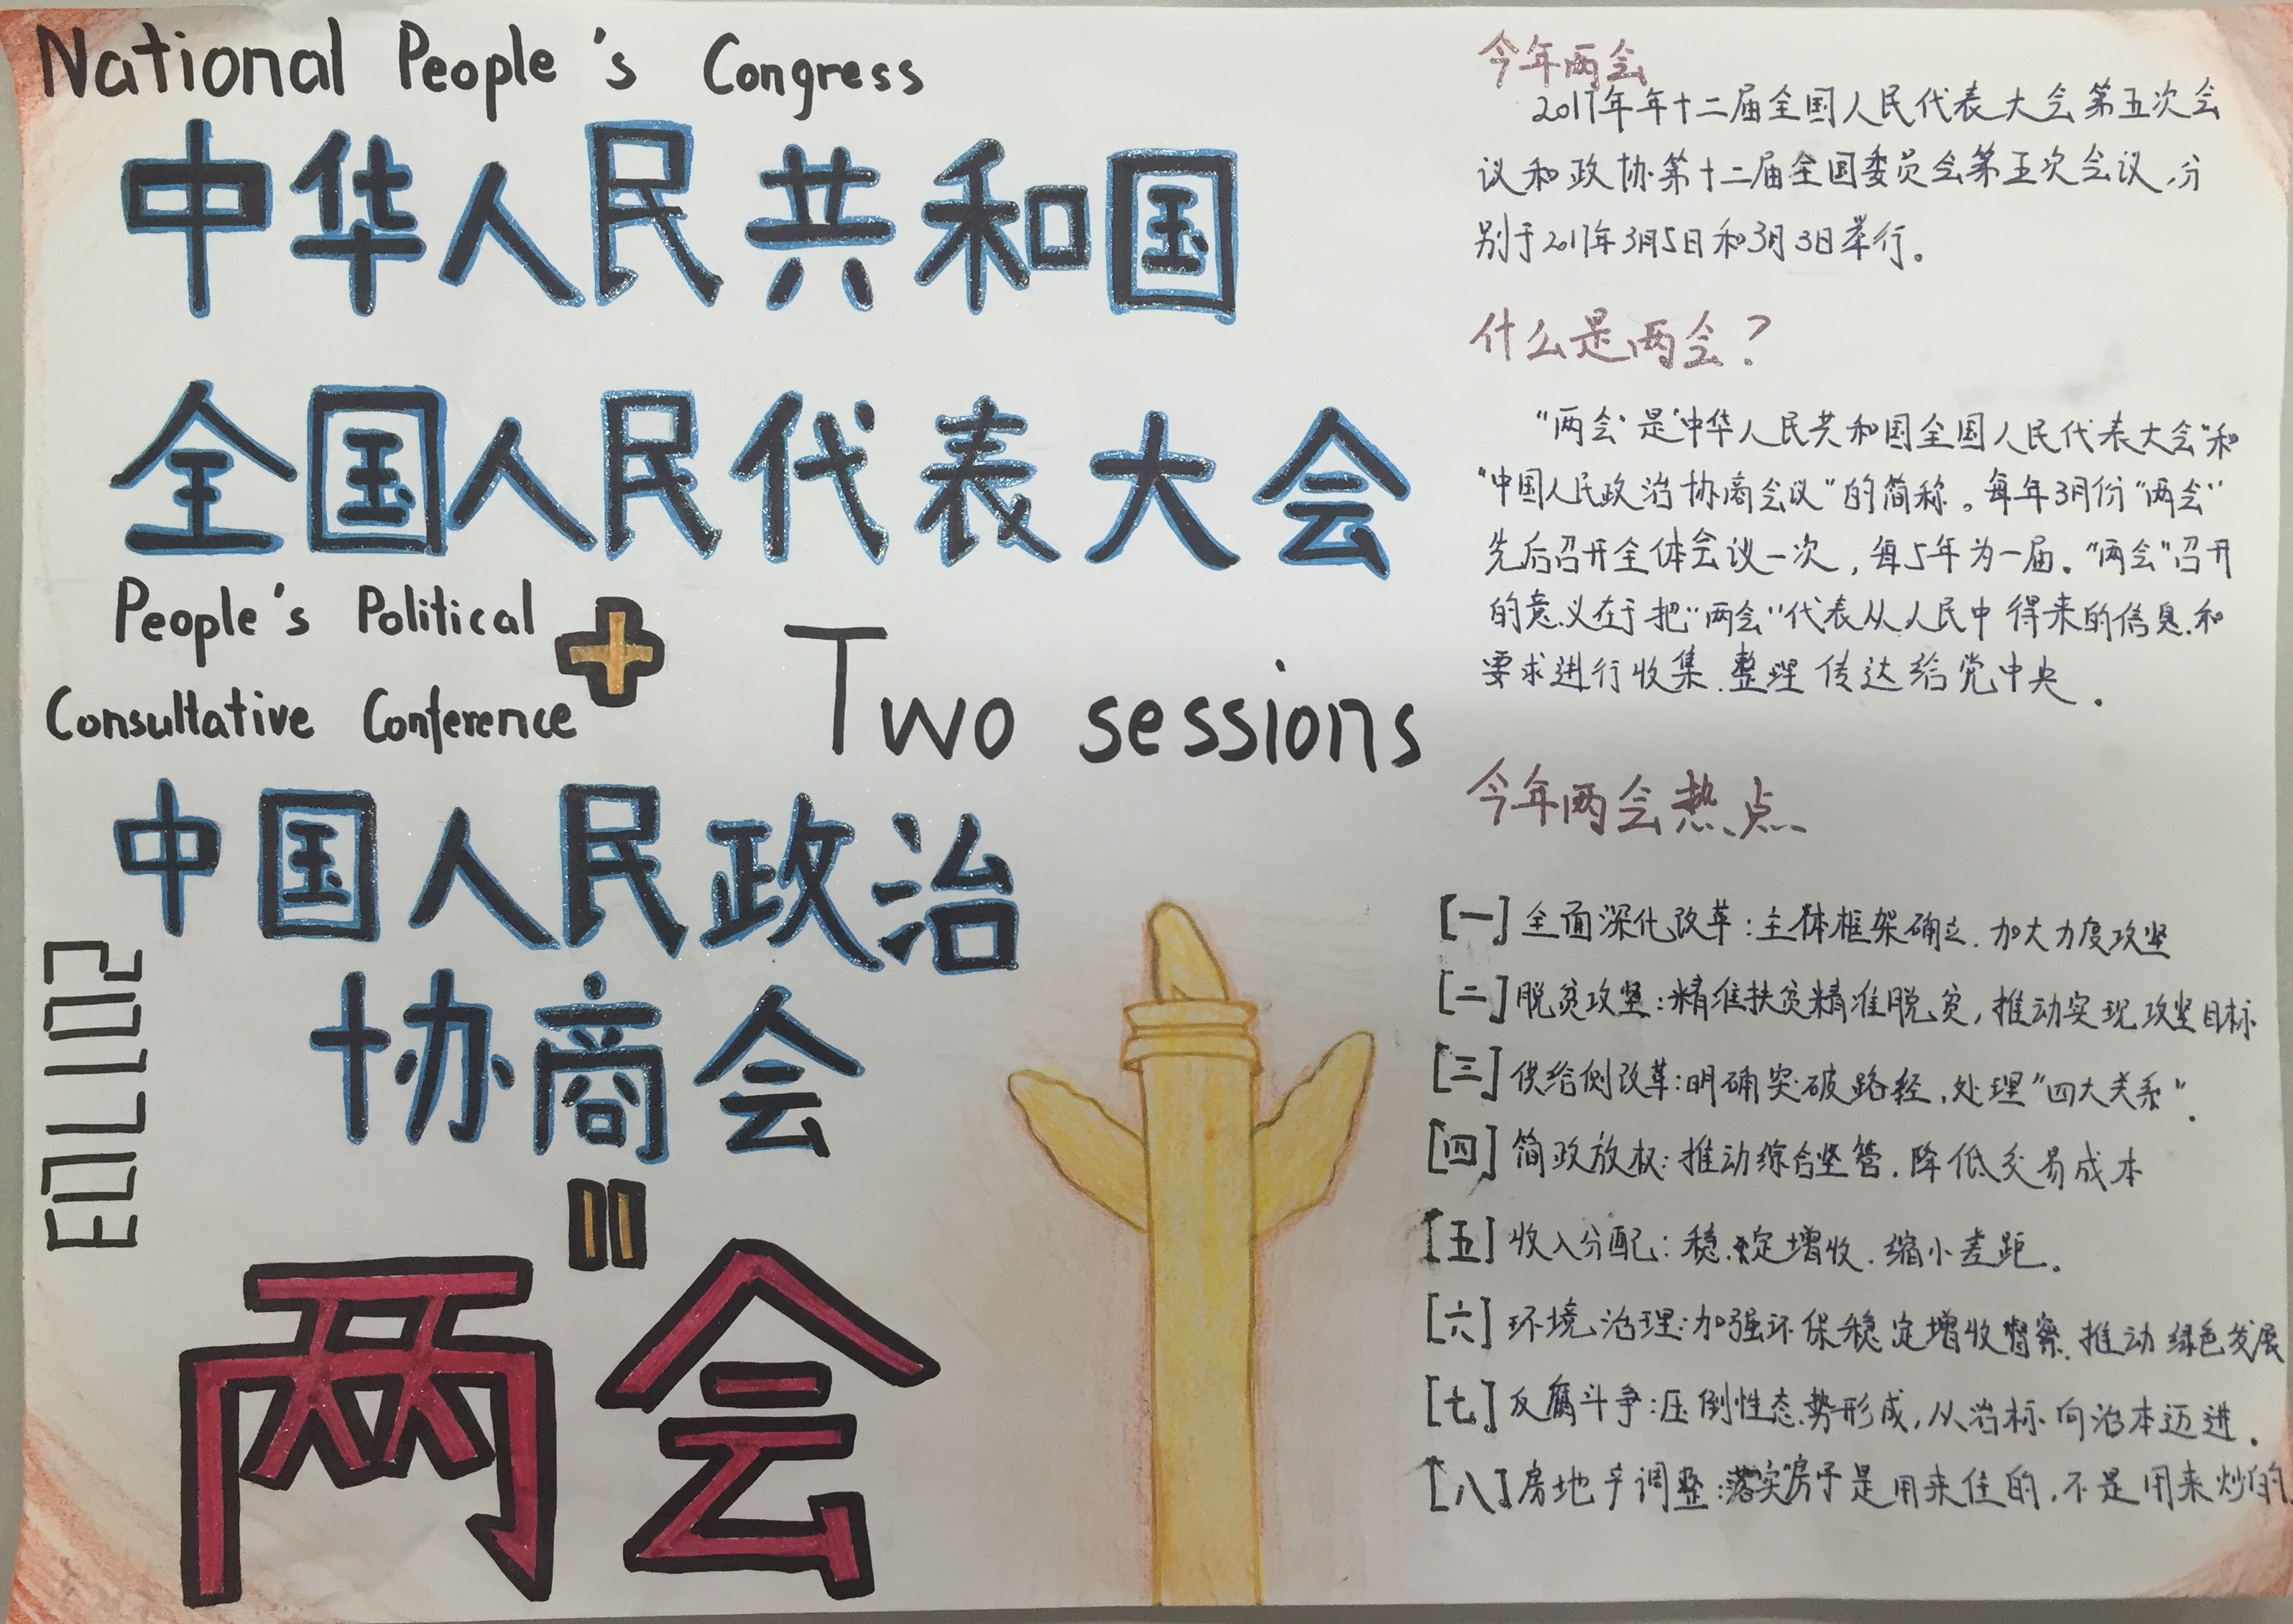 National People's Congress
中华人民共和国
全国人民代表大会
People's Political
Consultative Conference
+
Two sessions
中国人民政治
协商会
=
两会
201703
今年两会
2017年年十二届全国人民代表大会第五次会
议和政协第十二届全国委员会第五次会议,分
别于2017年3月5日和3月3日举行。
什么是两会?
“两会”是“中华人民共和国全国人民代表大会”和
“中国人民政治协商会议”的简称。每年3月份“两会”
先后召开全体会议一次,每5年为一届。“两会”召开
的意义在于把“两会”代表从人民中得来的信息和
要求进行收集.整理传达给党中央.
今年两会热点
[一]全面深化改革:主体框架确立.加大力度攻坚
[二]脱贫攻坚:精准扶贫精准脱贫,推动实现攻坚目标
[三]供给侧改革:明确突破路径,处理“四大关系”.
[四]简政放权:推动综合坚管.降低交易成本
[五]收入分配:稳定增收.缩小差距.
[六]环境治理:加强环保稳定增收督察.推动绿色发展
[七]反腐斗争:压倒性态势形成,从治标向治本迈进.
[八]房地产调整:落实“房子是用来住的,不是用来炒的